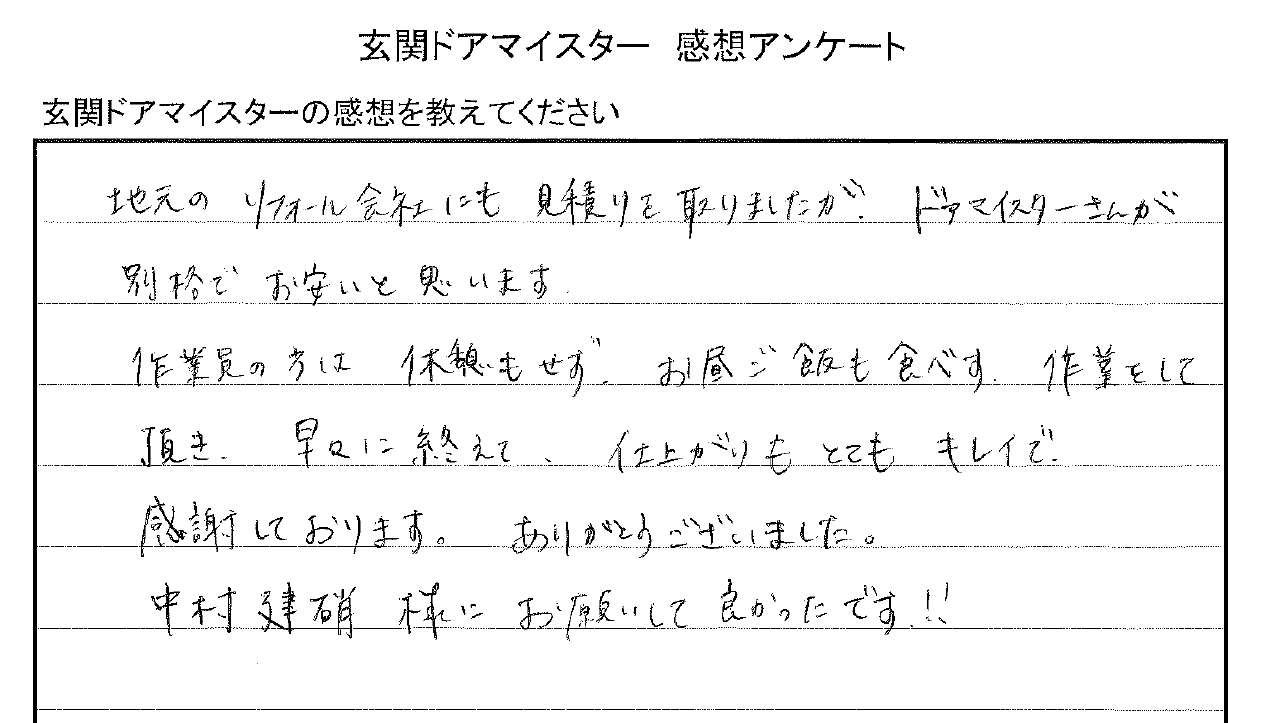 玄関ドアマイスター 感想アンケート
玄関ドアマイスターの感想を教えてください
地元の リフォール会社にも 見積りを 取りましたが、 ドアマイスターさんが
別格で お安いと 思います.
作業員の方は 休憩もせず、 お昼ご飯も食べず、 作業をして
頂き、 早々に終えて、 仕上がりも とても キレイで、
感謝しております。 ありがとうございました。
中村建硝 様に お願いして 良かったです!!